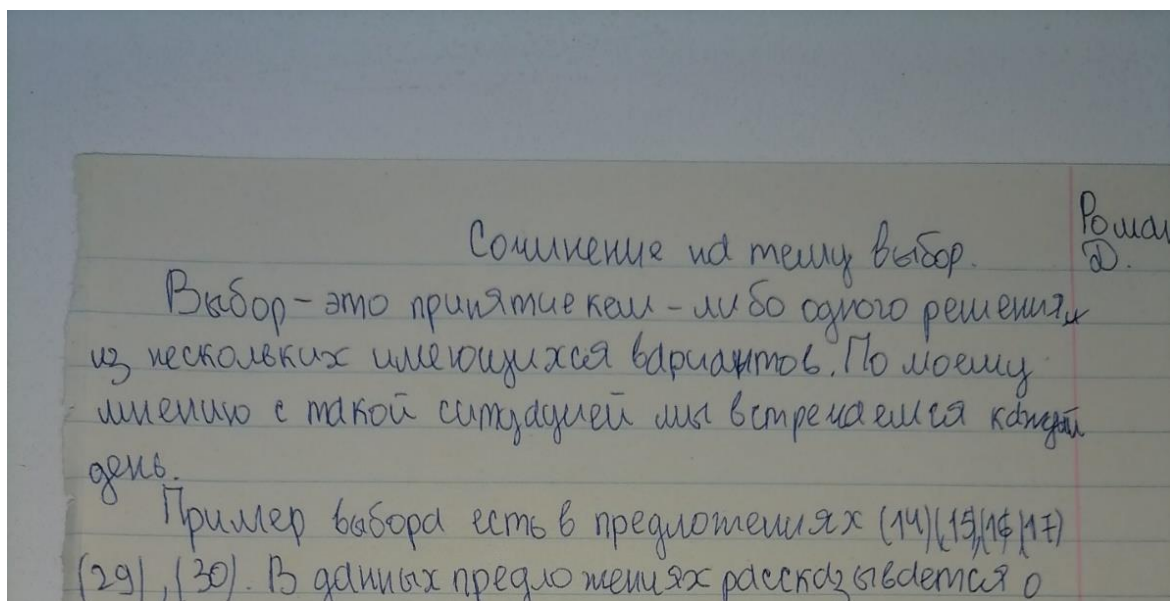 Сочинение на тему выбор.
Рома
Д.
Выбор - это принятие кем - либо одного решения
из нескольких имеющихся вариантов. По моему
мнению с такой ситуацией мы встречаемся каждый
день.
Пример выбора есть в предложениях (14)(15)(16)(17)
(29), (30). В данных предложениях рассказывается о